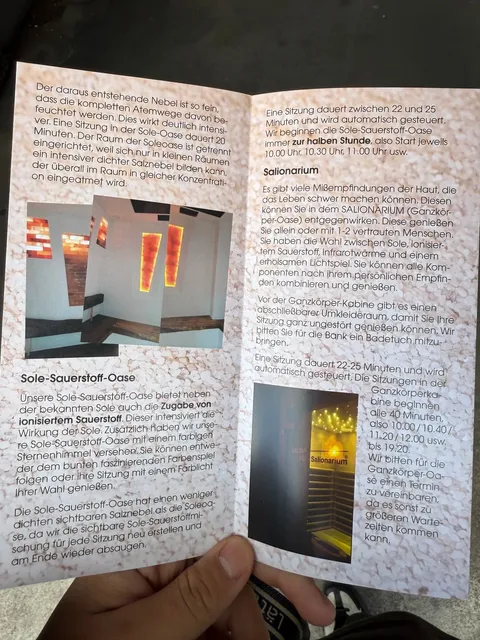 Der daraus entstehende Nebel ist so fein,
dass die kompletten Atemwege davon be-
feuchtet werden. Dies wirkt deutlich intensi-
ver. Eine Sitzung in der Sole-Oase dauert 20
Minuten. Der Raum der Soleoase ist getrennt
eingerichtet, weil sich nur in kleinen Räumen
ein intensiver dichter Salznebel bilden kann,
der überall im Raum in gleicher Konzentrati-
on eingeatmet wird.
Sole-Sauerstoff-Oase
Unsere Sole-Sauerstoff-Oase bietet neben
der bekannten Sole auch die Zugabe von
ionisiertem Sauerstoff. Dieser intensiviert die
Wirkung der Sole. Zusätzlich haben wir unse-
re Sole-Sauerstoff-Oase mit einem farbigen
Sternenhimmel versehen. Sie können entwe-
der dem bunten faszinierenden Farbenspiel
folgen oder ihre Sitzung mit einem Farblicht
Ihrer Wahl genießen.
Die Sole-Sauerstoff-Oase hat einen weniger
dichten sichtbaren Salznebel als die Soleoa-
se, da wir die sichtbare Sole-Sauerstoffmi-
schung für jede Sitzung neu erstellen und
am Ende wieder absaugen.
Eine Sitzung dauert zwischen 22 und 25
Minuten und wird automatisch gesteuert.
Wir beginnen die Sole-Sauerstoff-Oase
immer zur halben Stunde, also Start jeweils
10.00 Uhr, 10.30 Uhr, 11.00 Uhr usw.
Salionarium
Es gibt viele Mißempfindungen der Haut, die
das Leben schwer machen können. Diesen
können Sie in dem SALIONARIUM (Ganzkör-
per-Oase) entgegenwirken. Diese genießen
Sie allein oder mit 1-2 vertrauten Menschen.
Sie haben die Wahl zwischen Sole, ionisier-
tem Sauerstoff, Infrarotwärme und einem
erholsamen Lichtspiel. Sie können alle Kom-
ponenten nach ihrem persönlichen Empfin-
den kombinieren und genießen.
Vor der Ganzkörper-Kabine gibt es einen
abschließbarer Umkleideraum, damit Sie Ihre
Sitzung ganz ungestört genießen können. Wir
bitten Sie für die Bank ein Badetuch mitzu-
bringen.
Eine Sitzung dauert 22-25 Minuten und wird
automatisch gesteuert. Die Sitzungen in der
Ganzkörperka-
bine beginnen
alle 40 Minuten,
also 10.00/10.40/
11.20/12.00 usw.
bis 19.20.
Wir bitten für die
Ganzkörper-Oa-
se einen Termin
zu vereinbaren,
da es sonst zu
größeren Warte-
zeiten kommen
kann.
Salionarium